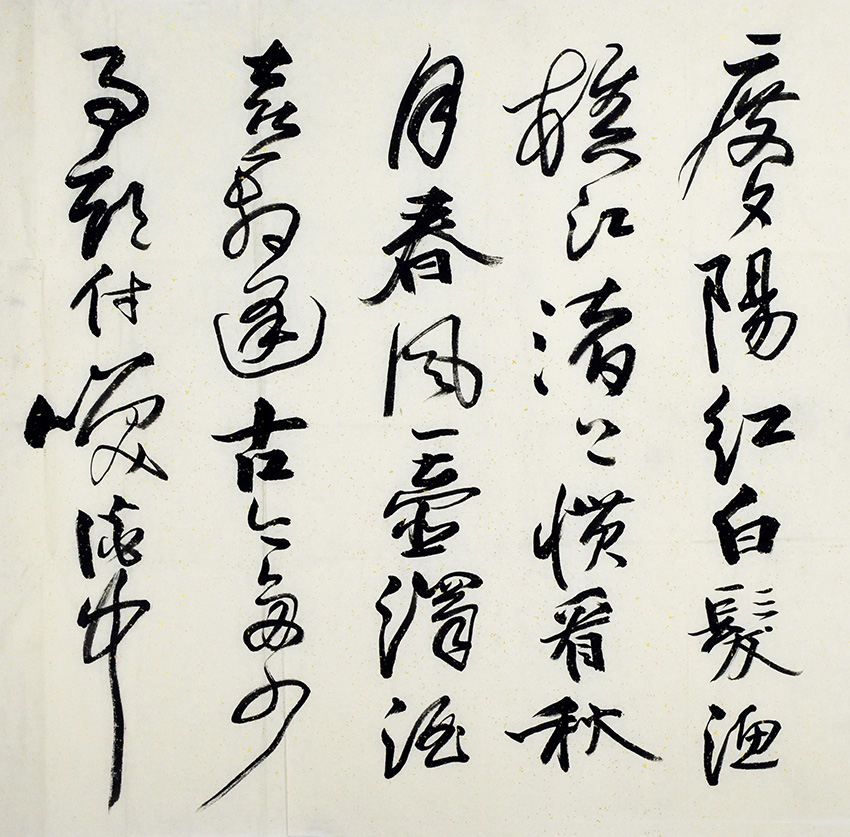 度夕陽紅白髮漁
樵江渚上慣看秋
月春風一壺濁酒
喜相逢古今多少
事都付笑談中